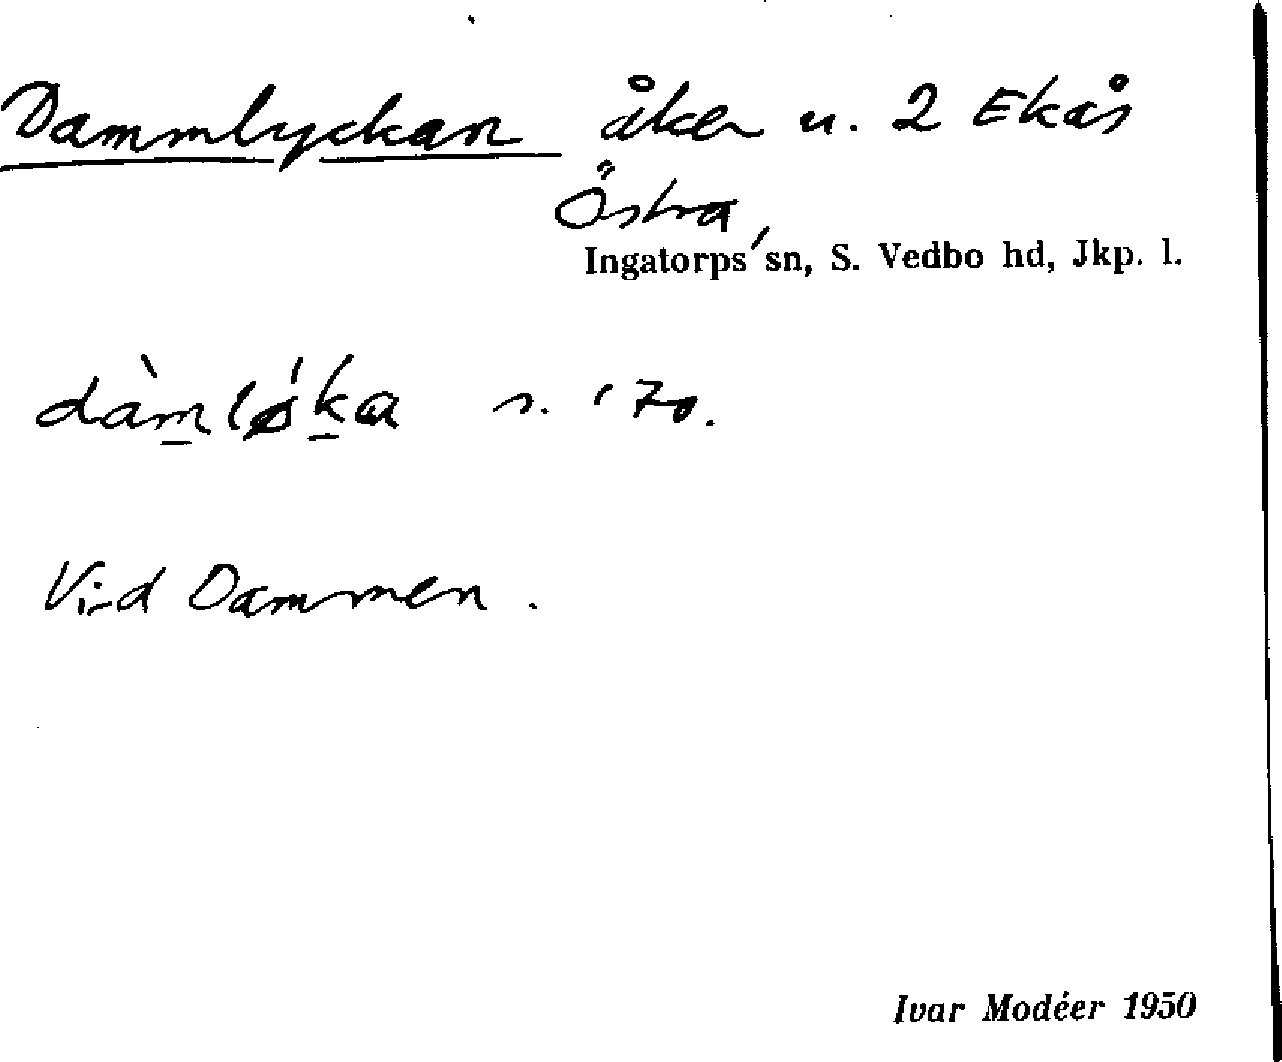 Dammlyckan åker u. 2 Ekås
Östra,
Ingatorps sn, S. Vedbo hd, Jkp. l.
dàm̲lǿk̲a s. '70.
Vid Dammen.
Ivar Modéer 1950